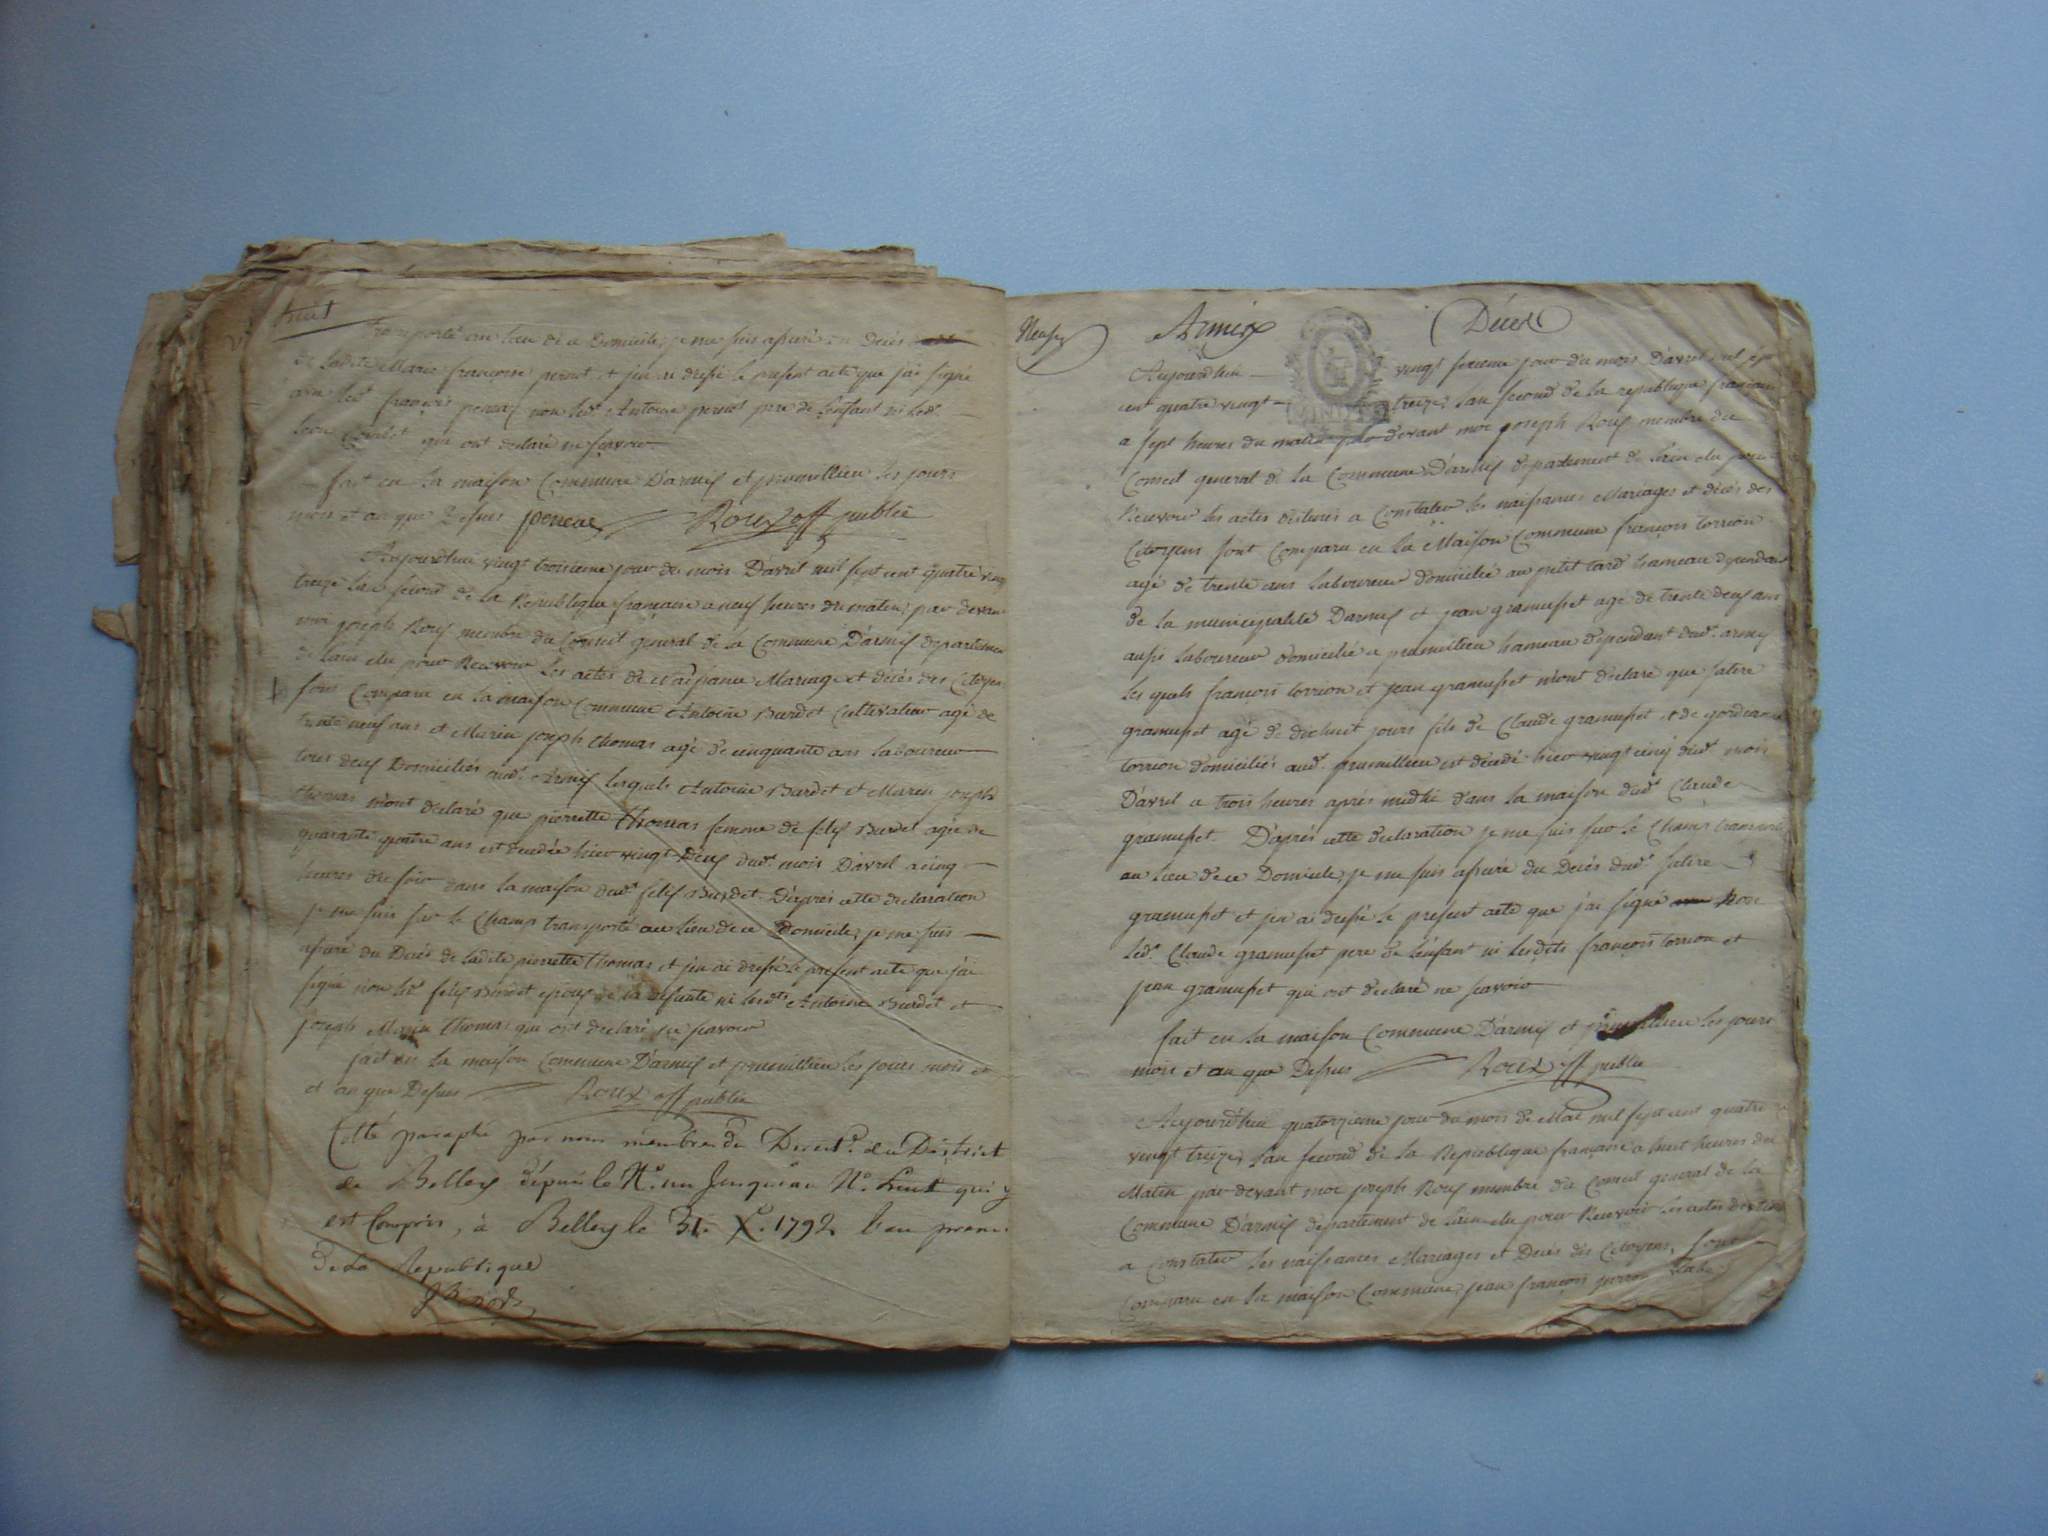 huit
transporté au lieu de ce Domicile, je me suis assuré du Décés
de ladite Marie françoise pernet et j'en ai dressé le present acte que j'ai signé
avec led. françois non led. Antoine pernet pere de l'enfant ni led.
qui ont declaré ne sçavoir
fait en la maison Commune D'armix et premillieu les jours
mois et an que Dessus Roux off publie
Aujourdhui vingt troisieme jour du mois D'avril mil sept cent quatre vingt
treize l'an second de la Republique françaisse a neuf heures du matin, par devant
moi joseph Roux membre du Conseil general de la Commune D'armix departement
de lain elu pour Recevoir les actes de Naissance Mariage et décés des Citoyens
sont Comparu en la maison Commune Antoine Burdet Cultivateur agé de
trente neuf ans et Marin joseph thomas agé de cinquante ans laboureur
tous deux Domiciliés aud. Armix lesquels Antoine Burdet et Marin joseph
thomas m'ont declaré que pierrette thomas femme de felix Burdet agée de
quarante quatre ans est decedée hier vingt Deux dud. mois D'avril a cinq
heures du soir dans la maison dud. felix Burdet. D'apres cette declaration
je me suis sur le Champ transporté au lieu de ce Domicile, je me suis
assuré du Decés de ladite pierrette thomas et j'en ai dressé le present acte que j'ai
signé non led. felix Burdet epoux de la defunte ni lesdts Antoine Burdet et
joseph Marin thomas qui ont declaré ne scavoir
fait en la maison Commune D'armix et premillieu les jours mois et
et an que Dessus Roux off publie
Cotté paraphé par nous membre du Direct.e du District
de Belley dépuis le N.o un Jusqu'au N.o huit qui y
est Compris, à Belley le 31. X.e 1792 l'an premier
De La Republique
Neuf
Armix Décés
Aujourdhui vingt sixieme jour du mois D'avril mil sept
cent quatre vingt treize, l'an second de la republique française
a sept heures du matin par devant moi joseph Roux membre du
Conseil general de la Commune D'armix departement de lain elu pour
Recevoir les actes destinés a Constater les naissances Mariages et décés des
Citoyens sont Comparu en la Maison Commune françois torrion
agé de trente ans laboureur domicilié au petit tard hameau dependant
de la municipalité D'armix et jean gramusset agé de trente deux ans
aussi laboureur domicilié a premillieu hameau dependant dud. armix
les quels françois torrion et jean gramusset m'ont declaré que
gramusset agé de dix huit jours fils de Claude gramusset et de
torrion domiciliés aud. premillieu est décédé hier vingt cinq dud. mois
D'avril a trois heures aprés midhi dans la maison dud. Claude
gramusset. D'aprés cette declaration je me suis sur le Champ transporté
au lieu de ce Domicile, je me suis assuré du Decés dud.
gramusset et j'en ai dressé le present acte que j'ai signé non
led. Claude gramusset pere de l'enfant ni lesdits françois torrion et
jean gramusset qui ont declaré ne scavoir
fait en la maison Commune D'armix et premillieu les jours
mois et an que Dessus Roux off publie
Aujourd'hui quatorzieme jour du mois de Mai mil sept cent quatre
vingt treize, l'an second de la Republique française a huit heures du
Matin par devant moi joseph Roux membre du Conseil general de la
Commune D'armix departement de lain elu pour Recevoir les actes destinés
a Constater les naissances Mariages et Decés des Citoyens, sont
Comparu en la maison Commune, jean françois